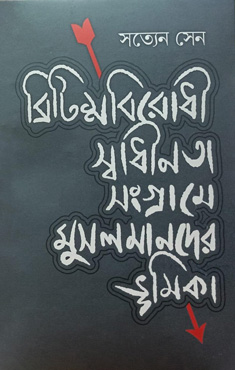 সত্যেন সেন
ব্রিটিশবিরোধী
স্বাধীনতা
সংগ্রামে
মুসলমানদের
ভূমিকা